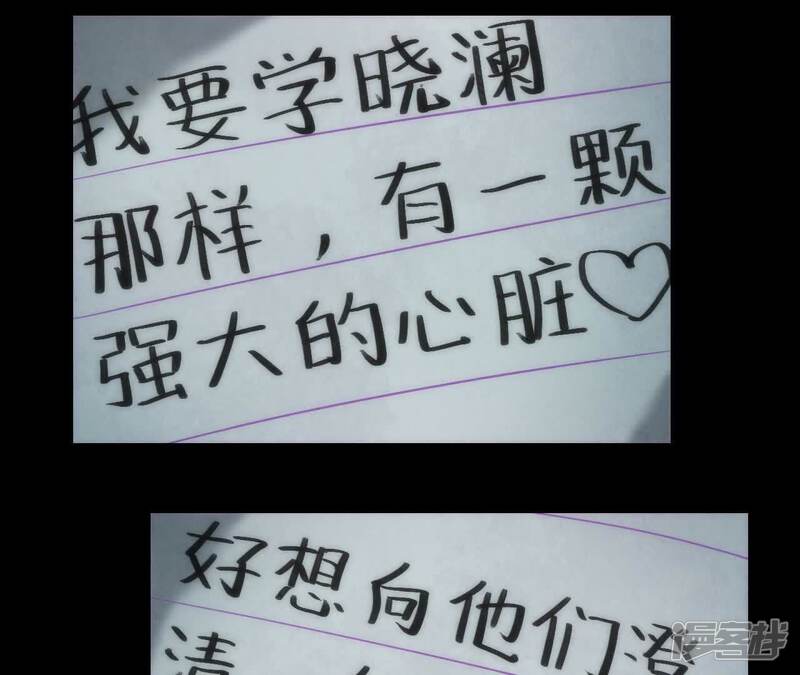 我要学晓澜
那样，有一颗
强大的心脏♡
好想向他们澄
清
漫客栈